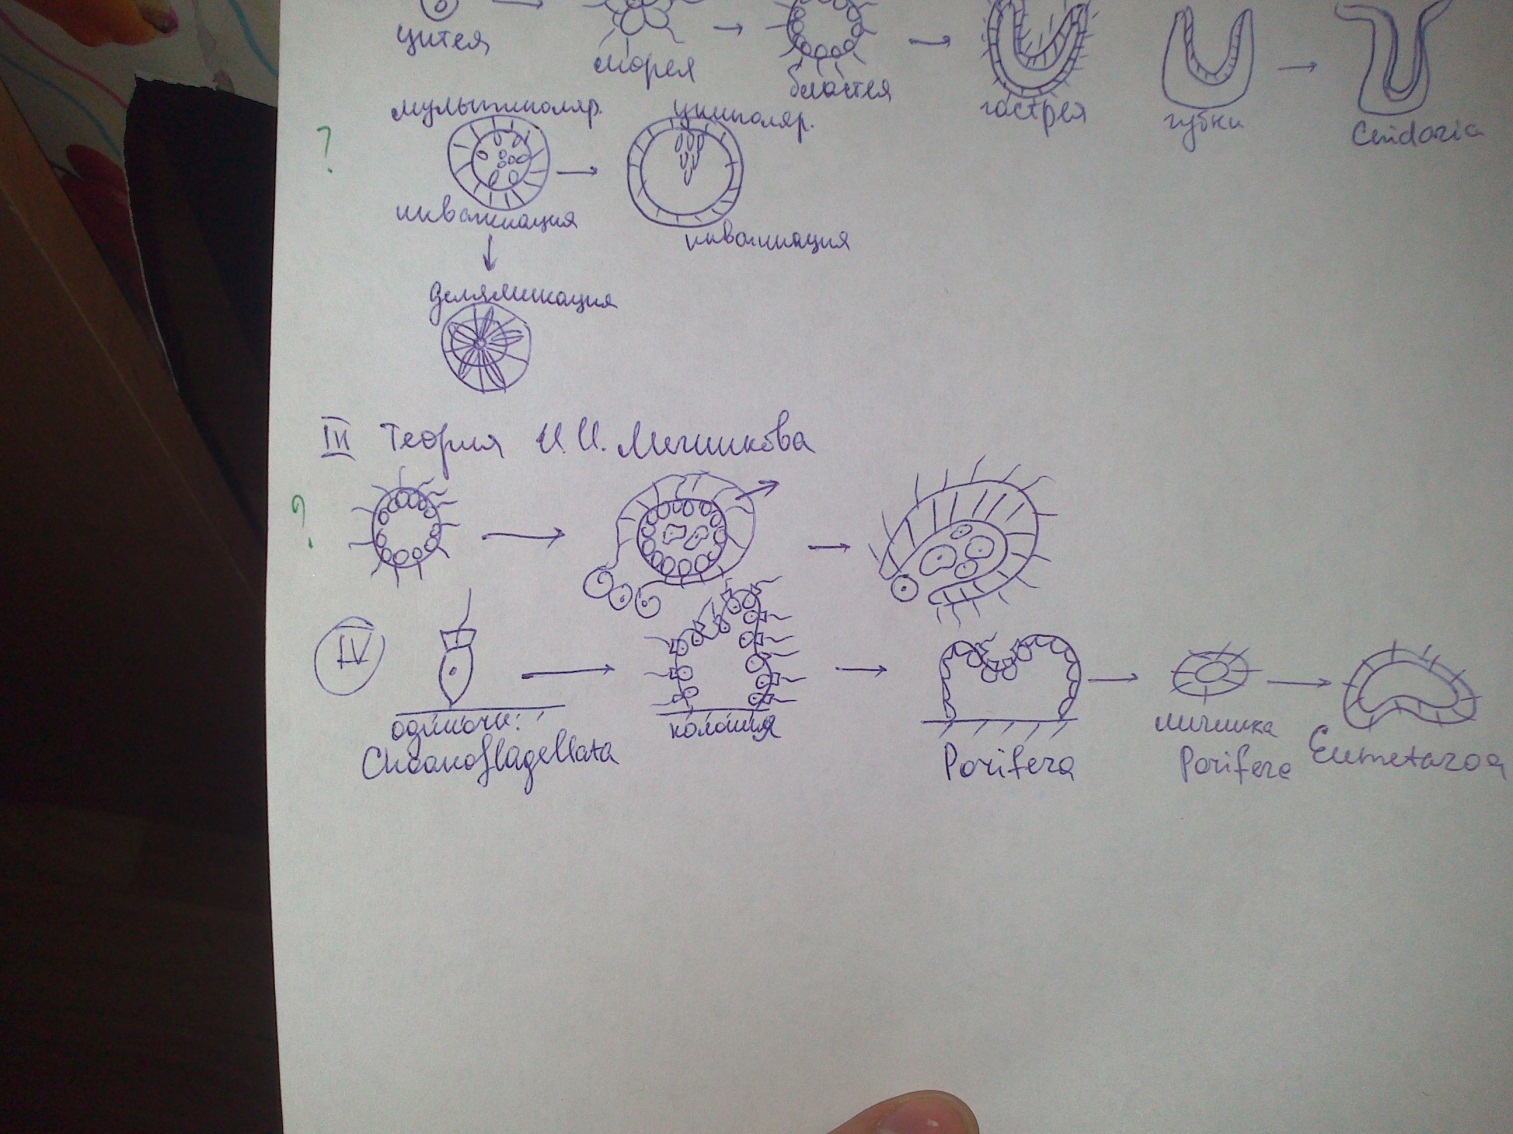 цитея
морея
бластея
гастрея
губки
Cnidaria
мультиполяр.
униполяр.
?
инвагинация
инвагинация
деляминация
III Теория И.И. Мечникова
?
IV
одиночн.
колония
Choanoflagellata
Porifera
личинка
Porifera
Eumetazoa